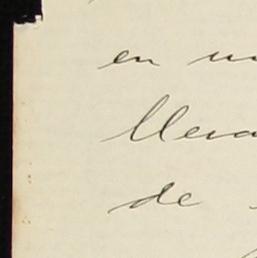 en un
lleva
de